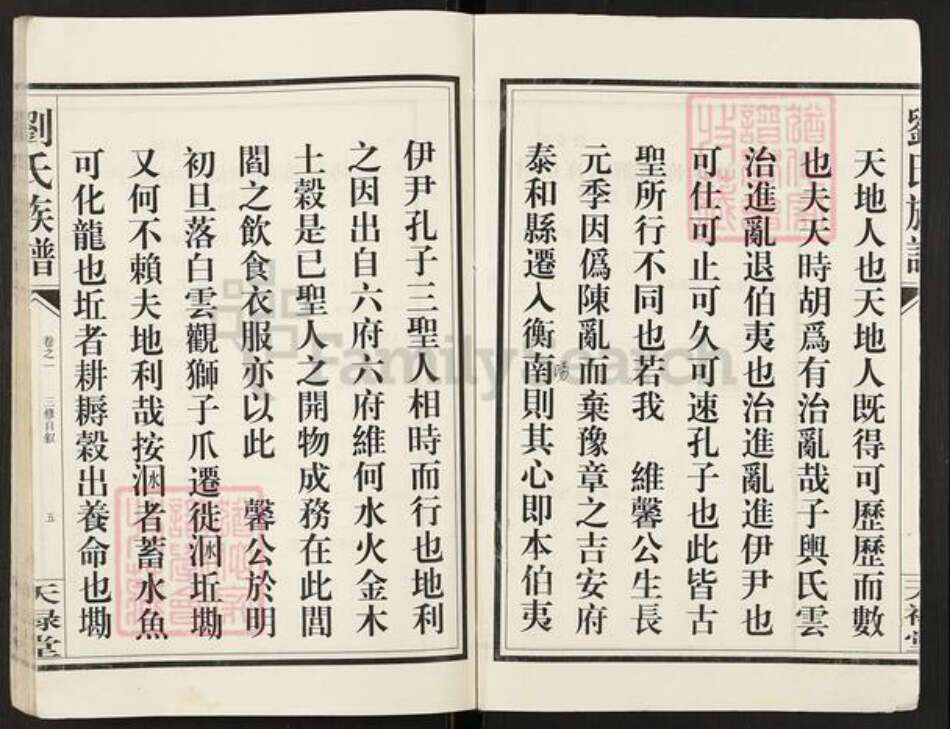 天地人也天地人既得可歷歷而數
也夫天時胡爲有治亂哉子輿氏雲
治進亂退伯夷也治進亂進伊尹也
可仕可止可久可速孔子也此皆古
聖所行不同也若我 維馨公生長
元季因僞陳亂而棄豫章之吉安府
泰和縣遷入衡南則其心即本伯夷
陽
伊尹孔子三聖人相時而行也地利
之因出自六府六府維何水火金木
土榖是已聖人之開物成務在此閭
閻之飲食衣服亦以此 馨公於明
初旦落白雲觀獅子爪遷徙𣳾坵坳
又何不賴夫地利哉按者蓄水魚
可化龍也坵者耕耨榖出養命也坳
劉氏族譜
卷之一 三修自叙 五
天祿堂
FamilySearch